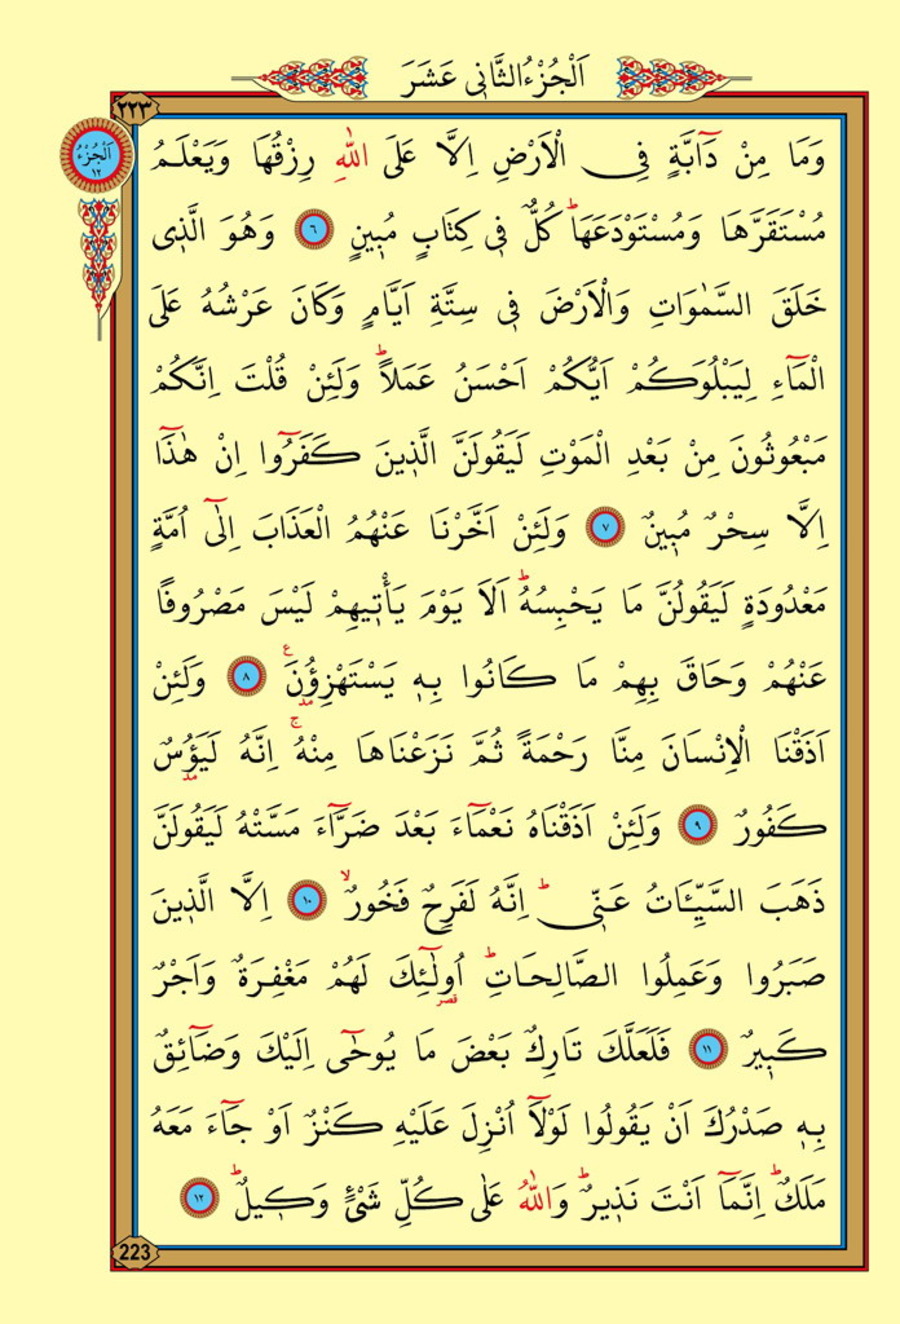 اَلْجُزْءُ الثَّانٖى عَشَرَ
٢٢٣
اَلْجُزْءُ
١٢
وَمَا مِنْ دَٓابَّةٍ فِى الْاَرْضِ اِلَّا عَلَى اللّٰهِ رِزْقُهَا وَيَعْلَمُ
مُسْتَقَرَّهَا وَمُسْتَوْدَعَهَاؕ كُلٌّ فٖى كِتَابٍ مُبٖينٍ ٦ وَهُوَ الَّذٖى
خَلَقَ السَّمٰوَاتِ وَالْاَرْضَ فٖى سِتَّةِ اَيَّامٍ وَكَانَ عَرْشُهُ عَلَى
الْمَٓاءِ لِيَبْلُوَكُمْ اَيُّكُمْ اَحْسَنُ عَمَلًاؕ وَلَئِنْ قُلْتَ اِنَّكُمْ
مَبْعُوثُونَ مِنْ بَعْدِ الْمَوْتِ لَيَقُولَنَّ الَّذٖينَ كَفَرُٓوا اِنْ هٰذَٓا
اِلَّا سِحْرٌ مُبٖينٌ ٧ وَلَئِنْ اَخَّرْنَا عَنْهُمُ الْعَذَابَ اِلٰٓى اُمَّةٍ
مَعْدُودَةٍ لَيَقُولُنَّ مَا يَحْبِسُهُؕ اَلَا يَوْمَ يَأْتٖيهِمْ لَيْسَ مَصْرُوفًا
عَنْهُمْ وَحَاقَ بِهِمْ مَا كَانُوا بِهٖ يَسْتَهْزِؤُنَ ع مد ٨ وَلَئِنْ
اَذَقْنَا الْاِنْسَانَ مِنَّا رَحْمَةً ثُمَّ نَزَعْنَاهَا مِنْهُۚ اِنَّهُ لَيَؤُسٌ مد
كَفُورٌ ٩ وَلَئِنْ اَذَقْنَاهُ نَعْمَٓاءَ بَعْدَ ضَرَّٓاءَ مَسَّتْهُ لَيَقُولَنَّ
ذَهَبَ السَّيِّـَٔاتُ عَنّٖىؕ اِنَّهُ لَفَرِحٌ فَخُورٌۙ ١٠ اِلَّا الَّذٖينَ
صَبَرُوا وَعَمِلُوا الصَّالِحَاتِؕ اُو۬لٰٓئِكَ قصر لَهُمْ مَغْفِرَةٌ وَاَجْرٌ
كَبٖيرٌ ١١ فَلَعَلَّكَ تَارِكٌ بَعْضَ مَا يُوحٰٓى اِلَيْكَ وَضَٓائِقٌ
بِهٖ صَدْرُكَ اَنْ يَقُولُوا لَوْلَٓا اُنْزِلَ عَلَيْهِ كَنْزٌ اَوْ جَٓاءَ مَعَهُ
مَلَكٌؕ اِنَّمَٓا اَنْتَ نَذٖيرٌؕ وَاللّٰهُ عَلٰى كُلِّ شَىْءٍ وَكٖيلٌؕ ١٢
223